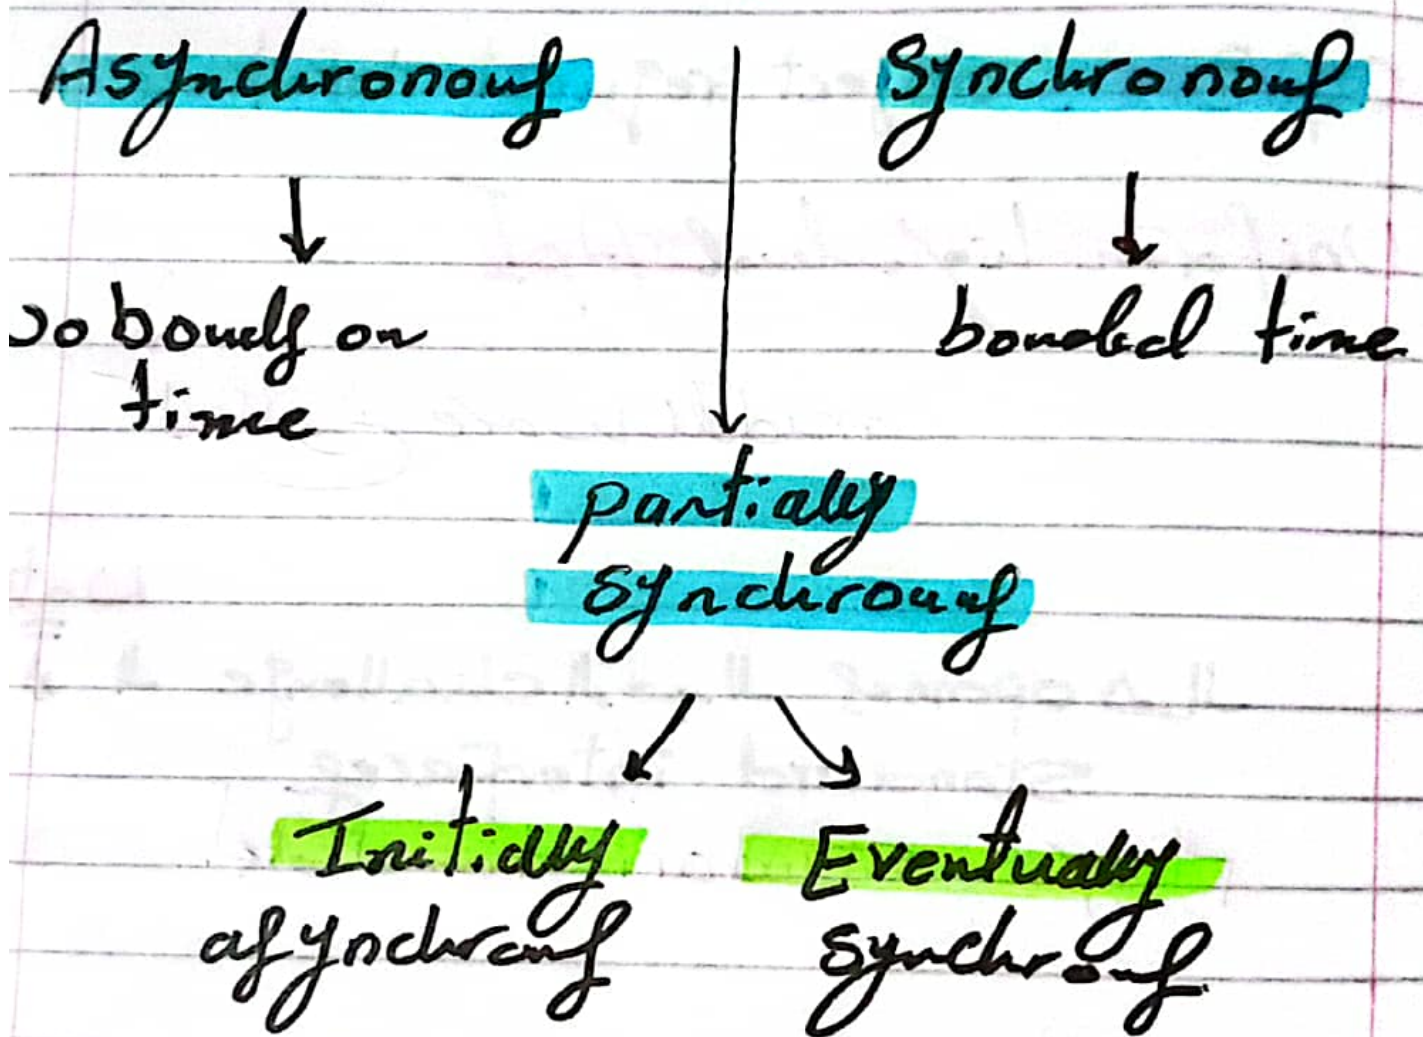 Asynchronous
Synchronous
no bounds on
time
bounded time
partially
synchronous
Initially
asynchronous
Eventually
synchronous